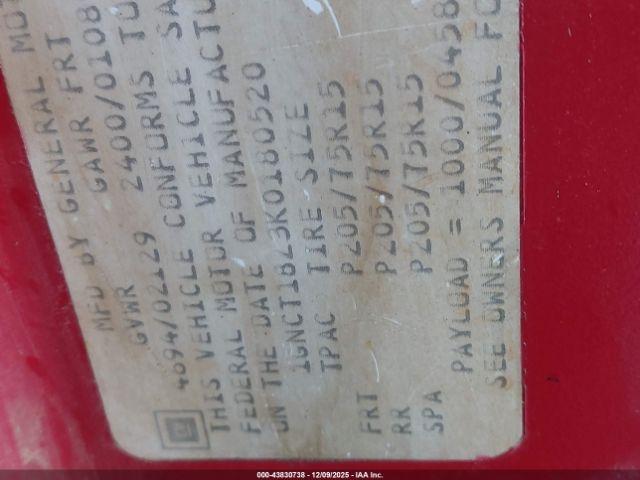 MFD BY GENERAL MOT
GVWR GAWR FRT
4694/02129 2400/0108
THIS VEHICLE CONFORMS TO
FEDERAL MOTOR VEHICLE SA
ON THE DATE OF MANUFACTU
1GNCT18Z3K0180520
TPAC TIRE SIZE
FRT P205/75R15
RR P205/75R15
SPA P205/75R15
PAYLOAD = 1000/0458
SEE OWNERS MANUAL FO
GM
000-43830738 - 12/09/2025 - IAA Inc.